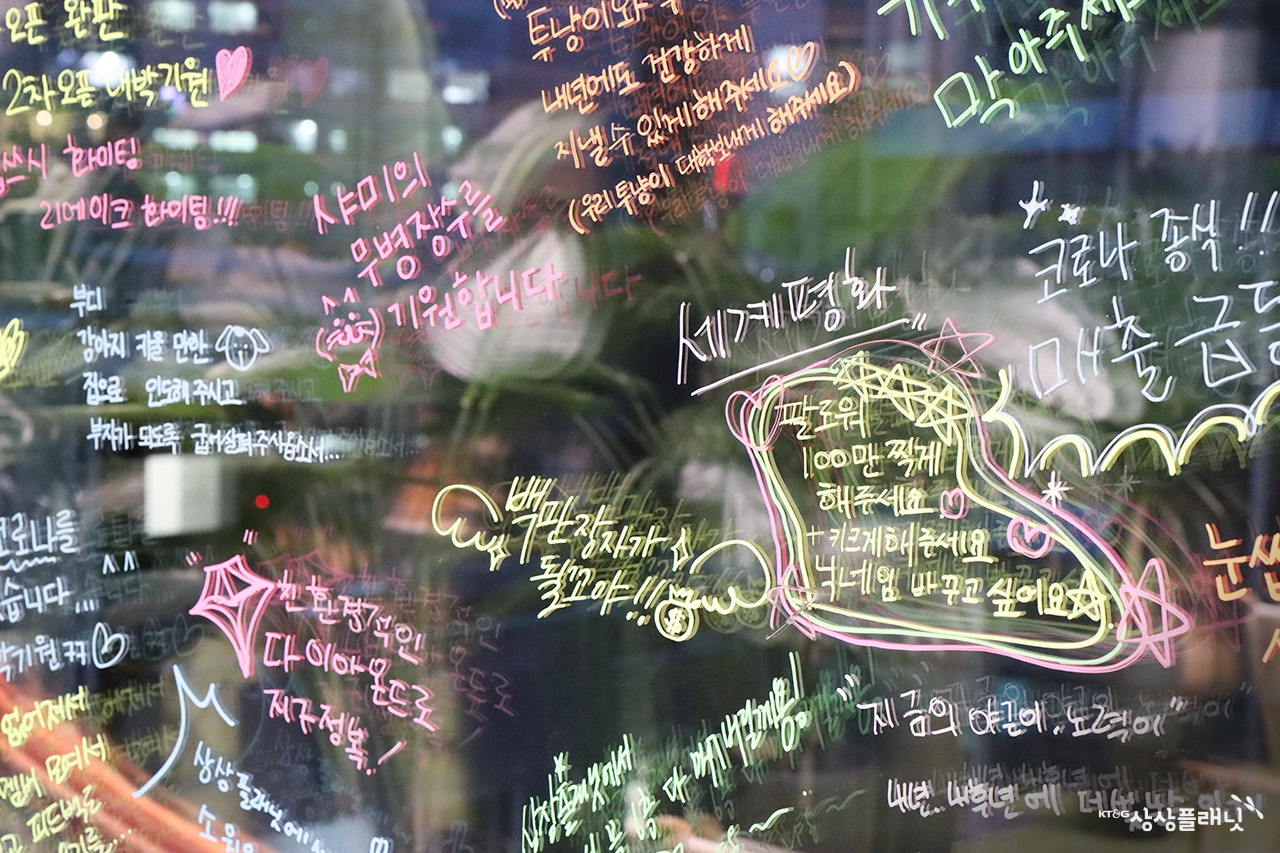 오픈 완판
2차 오픈 대박 기원
화이팅
리메이크 화이팅!!!
튜냥이와
내년에도 건강하게
지낼 수 있게 해주세요
(우리 투냥이 대학보내게 해주세요)
막아주세
샤미의
무병장수를
기원합니다
부디
강아지 키울 만한
집으로 인도해 주시고
부자가 되도록 굽어살펴주시옵소서...
세계평화
코로나 종식!!
매출 급등
팔로워
100만 찍게
해주세요
+ 키크게해주세요
닉네임 바꾸고 싶어요
백만장자가
될꼬야!!!
코로나를
습니다....
기원ㅋㅋ
친환경적인
다이아몬드로
지구정복..!
없어져서
멤버
피드백도
상상플래닛에서
소원
상상플래닛에서
다 해내길께용!
"지금의 야근이.. 노력이"
내년.. 내후년에
눈
KT&G 상상플래닛